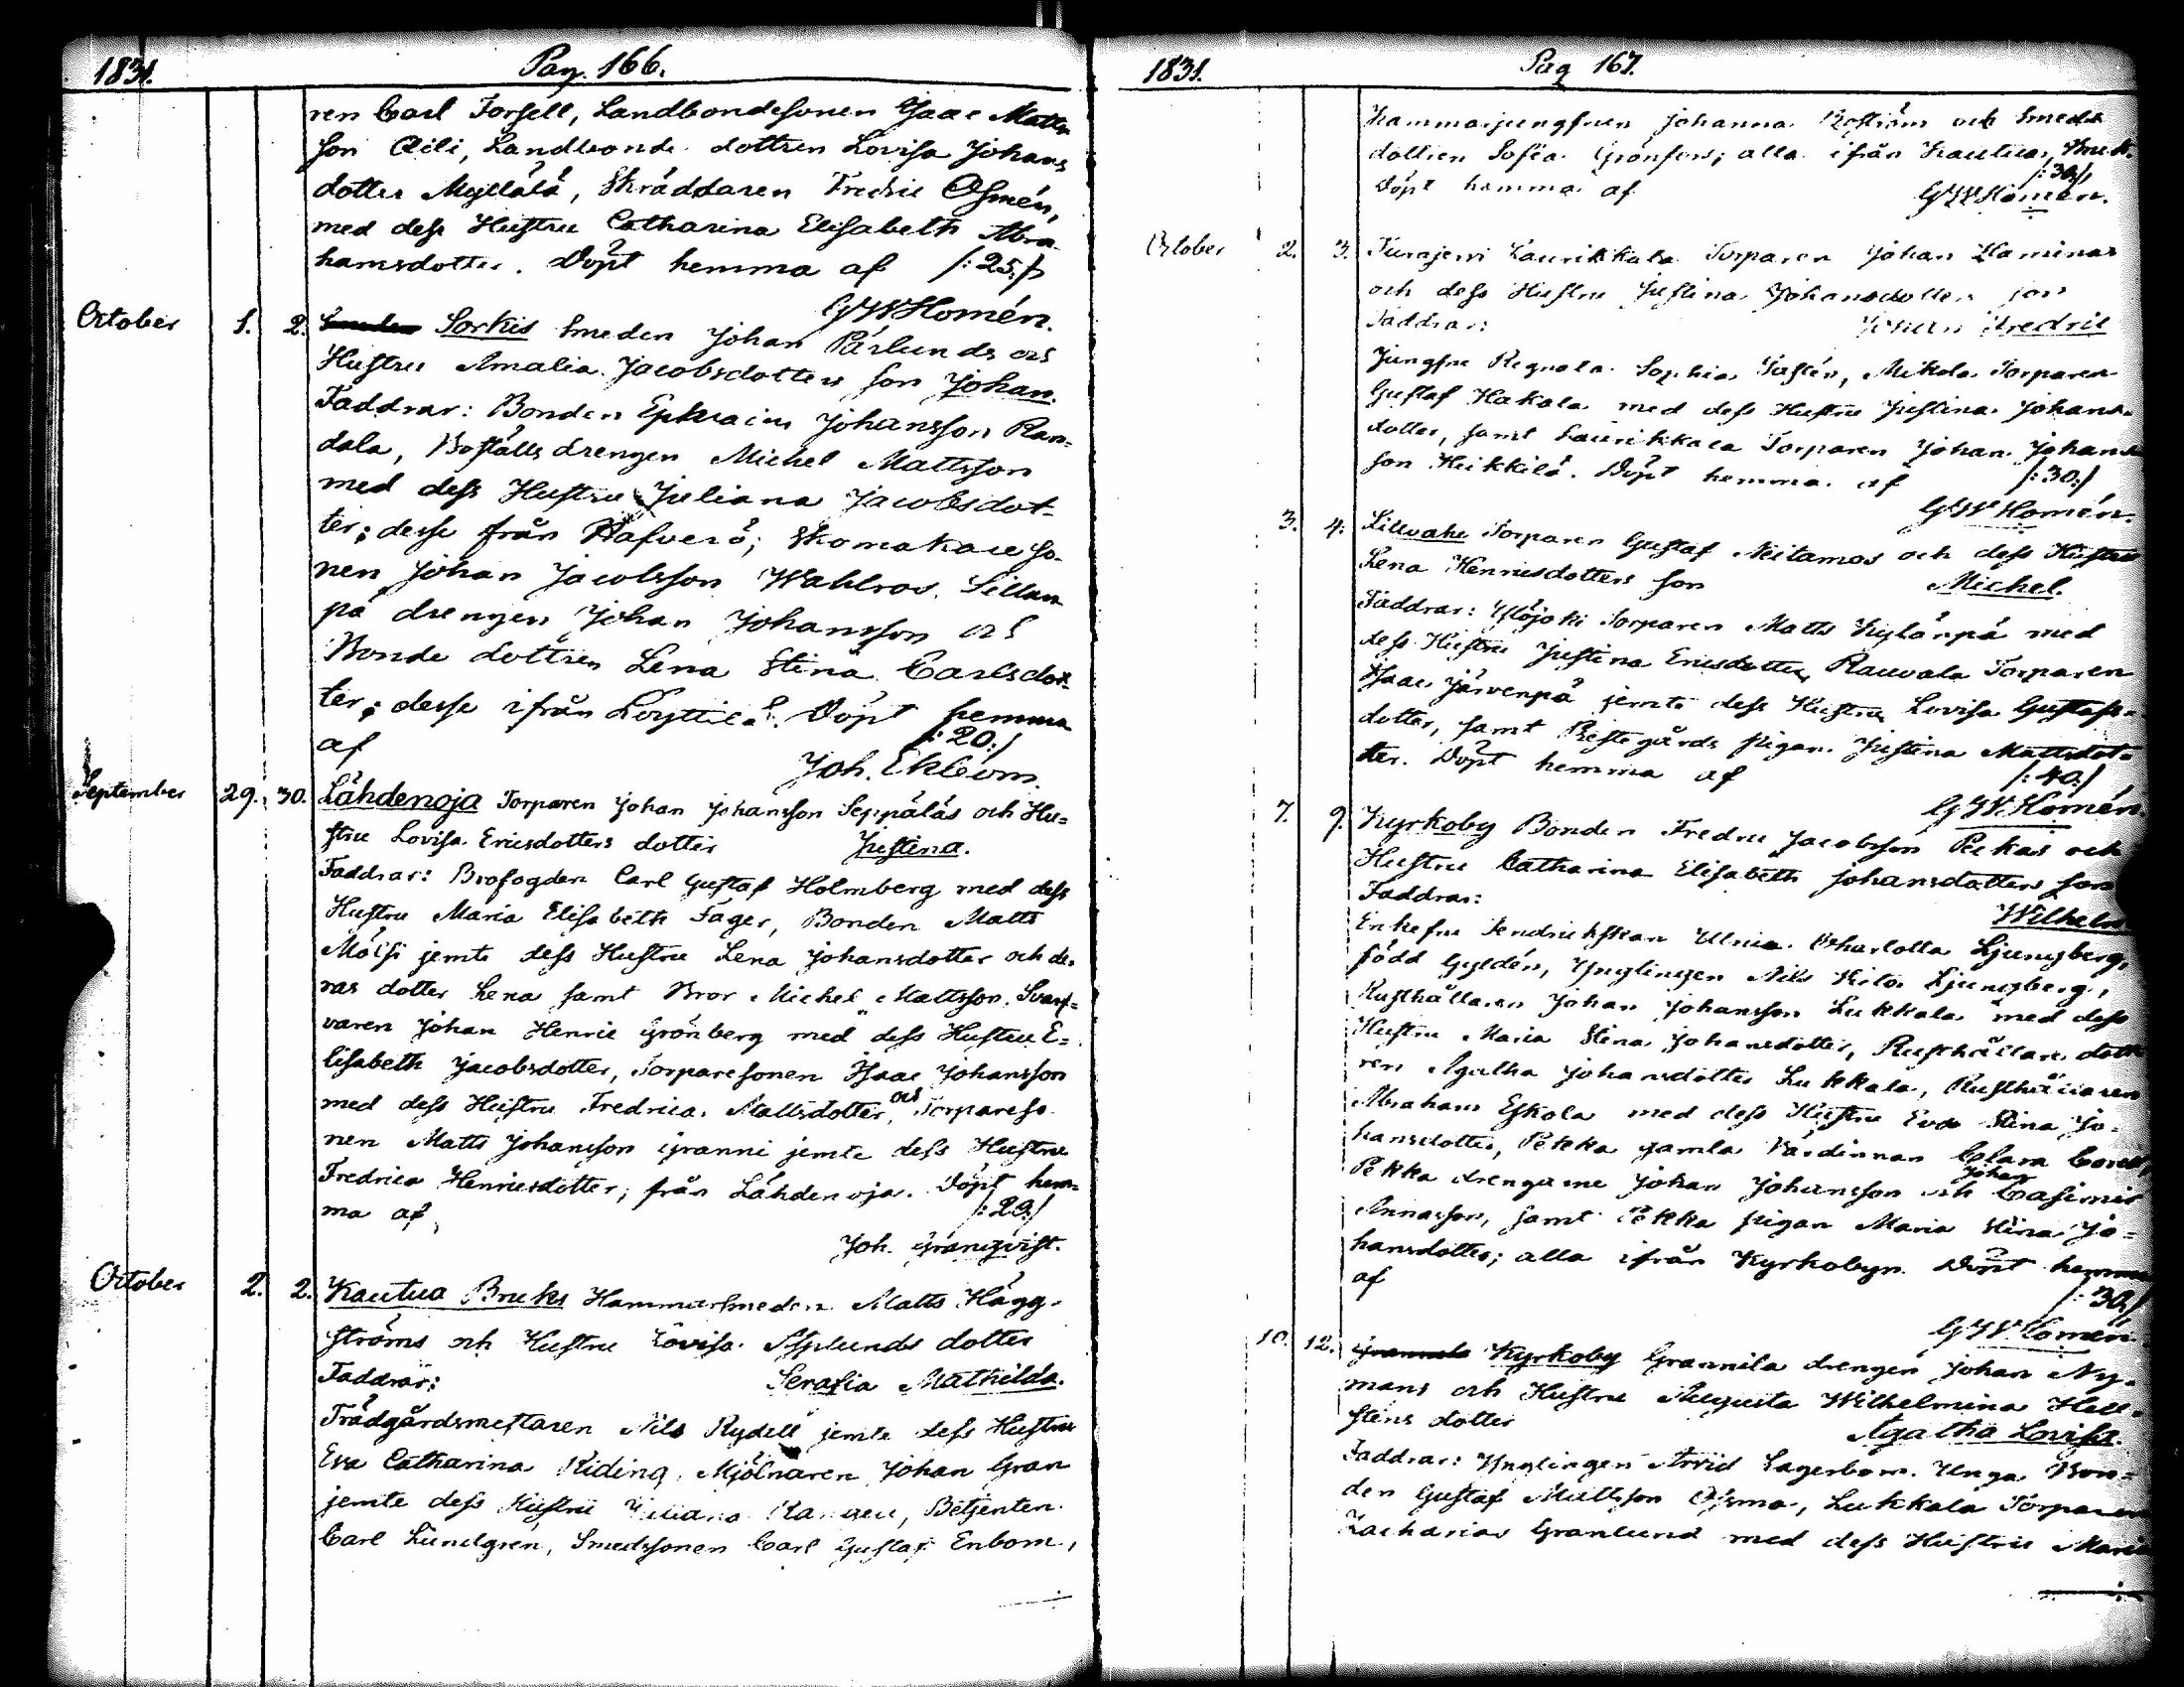 1831. Pag. 166.
ren Carl Forsell, Landbondesonen Isaac Matts
son Eili, Landbonde dottren Lovisa Johans
dotter Myllälä, Skräddaren Fredric Osmén,
med dess Hustru Catharina Elisabeth Abra-
hamsdotter. Döpt hemma af /:25:/
GW Homén.
October 1. 2. Sorkis Smeden Johan Pärlunds och
Hustru Amalia Jacobsdotters son Johan.
Faddrar: Bonden Ephraim Johansson Ran=
dala, Boställs drengen Michel Mattsson
med dess Hustru Juliana Jacobsdot-
ter; desse från Hafverö; Skomakare so-
nen Johan Jacobsson Wahlros, Sillan
pä drengen Johan Johansson och
Bonde dottren Lena Stina Carlsdot-
ter; desse ifrån Löyttilä. Döpt hemma
af /:20:/
Joh. Ekbom.
September 29. 30. Lähdenoja Torparen Johan Johansson Seppäläs och Hu=
stru Lovisa Ericsdotters dotter Justina.
Faddrar: Brofogden Carl Gustaf Holmberg med dess
Hustru Maria Elisabeth Fager, Bonden Matts
Mölsi jemte dess Hustru Lena Johansdotter och de-
ras dotter Lena samt Bror Michel Mattsson, Svarf=
varen Johan Henric Grönberg med dess Hustru E=
lisabeth Jacobsdotter, Torparesonen Isaac Johansson
med dess Hustru Fredrica Mattsdotter, och Torpareso-
nen Matts Johansson Granni jemte dess Hustru
Fredrica Henricsdotter; från Lähdenoja. Döpt hem=
ma af /:29:/
Joh. Granqvist.
October 2. 2. Kautua Bruks Hammarsmeden Matts Hägg-
ströms och Hustru Lovisa Asplunds dotter
Faddrar: Serafia Mathilda.
Trädgårdsmestaren Nils Rydell jemte dess Hustru
Eva Catharina Riding, Mjölnaren Johan Gran
jemte dess Hustru Juliana Betjenten
Carl Lundgren, Smedssonen Carl Gustaf Enbom,
1831. Pag 167.
Kammarjungfrun Johanna Boström och Smeds
dottren Sofia Grönfors; alla ifrån Kautua
Döpt hemma af /:30:/
GW Homén.
October 2. 3. Turajervi Laurikkala Torparen Johan Haminas
och dess Hustru Justina Johansdotters son
Faddrar: Johan Fredric
Jungfru Regnala Sophia Mikola Torparen
Gustaf Hakala med dess Hustru Justina Johans-
dotter, samt Laurikkala Torparen Johan Johans
son Heikkilä. Döpt hemma af /:30:/
GW Homén.
3. 4. Lillvahe Torparen Gustaf Neitamos och dess Hustru
Lena Henricsdotters son Michel.
Faddrar: Yllöjoki Torparen Matts Kylänpä med
dess Hustru Justina Ericsdotter, Rauvala Torparen
Isaac Järvenpä jemte dess Hustru Lovisa Gustafs=
dotter, samt Prestegårds pigan Justina Mattsdot=
ter. Döpt hemma af /:40:/
GW Homén.
7. 9. Kyrkoby Bonden Fredric Jacobsson Pekas och
Hustru Catharina Elisabeth Johansdotters son
Faddrar: Wilhelm
Enkefru Ulrica Charlotta Ljungberg,
född Gyldén, Ynglingen Nils Ljungberg,
Rusthållaren Johan Johansson Lukkala med dess
Hustru Maria Stina Johansdotter, Rusthållare dott
ren Agatha Johansdotter Lukkala, Rusthållaren
Abraham Eskola med dess Hustru Eva Stina Jo-
hansdotter, Pekka gamla Värdinnan Clara
Pekka drengarne Johan Johansson och Johan Casimir
Annasson, samt Pekka pigan Maria Stina Jo=
hansdotter; alla ifrån Kyrkobyn. Döpt hemma
af /:30:/
GW Homén.
10. 12. Kyrkoby Grannila drengen Johan Ny-
mans och Hustru Augusta Wilhelmina Hell-
stens dotter Agatha Lovisa.
Faddrar: Ynglingen Arvid Lagerbom. Unga Bon=
den Gustaf Mattsson Lukkala Torparen
Zacharias Granlund med dess Hustru Maria